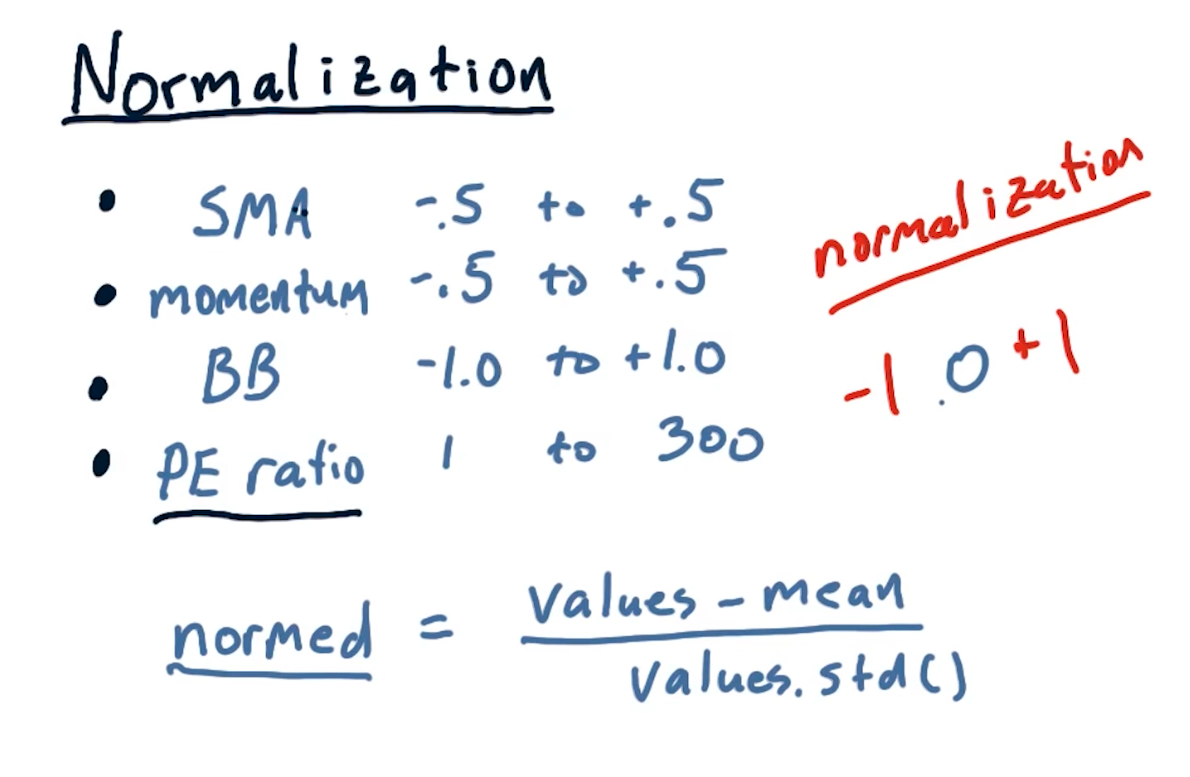 Normalization
• SMA -.5 to +.5
• momentum -.5 to +.5
• BB -1.0 to +1.0
• PE ratio 1 to 300
normalization
-1 .0 +1
normed = values - mean
values.std()